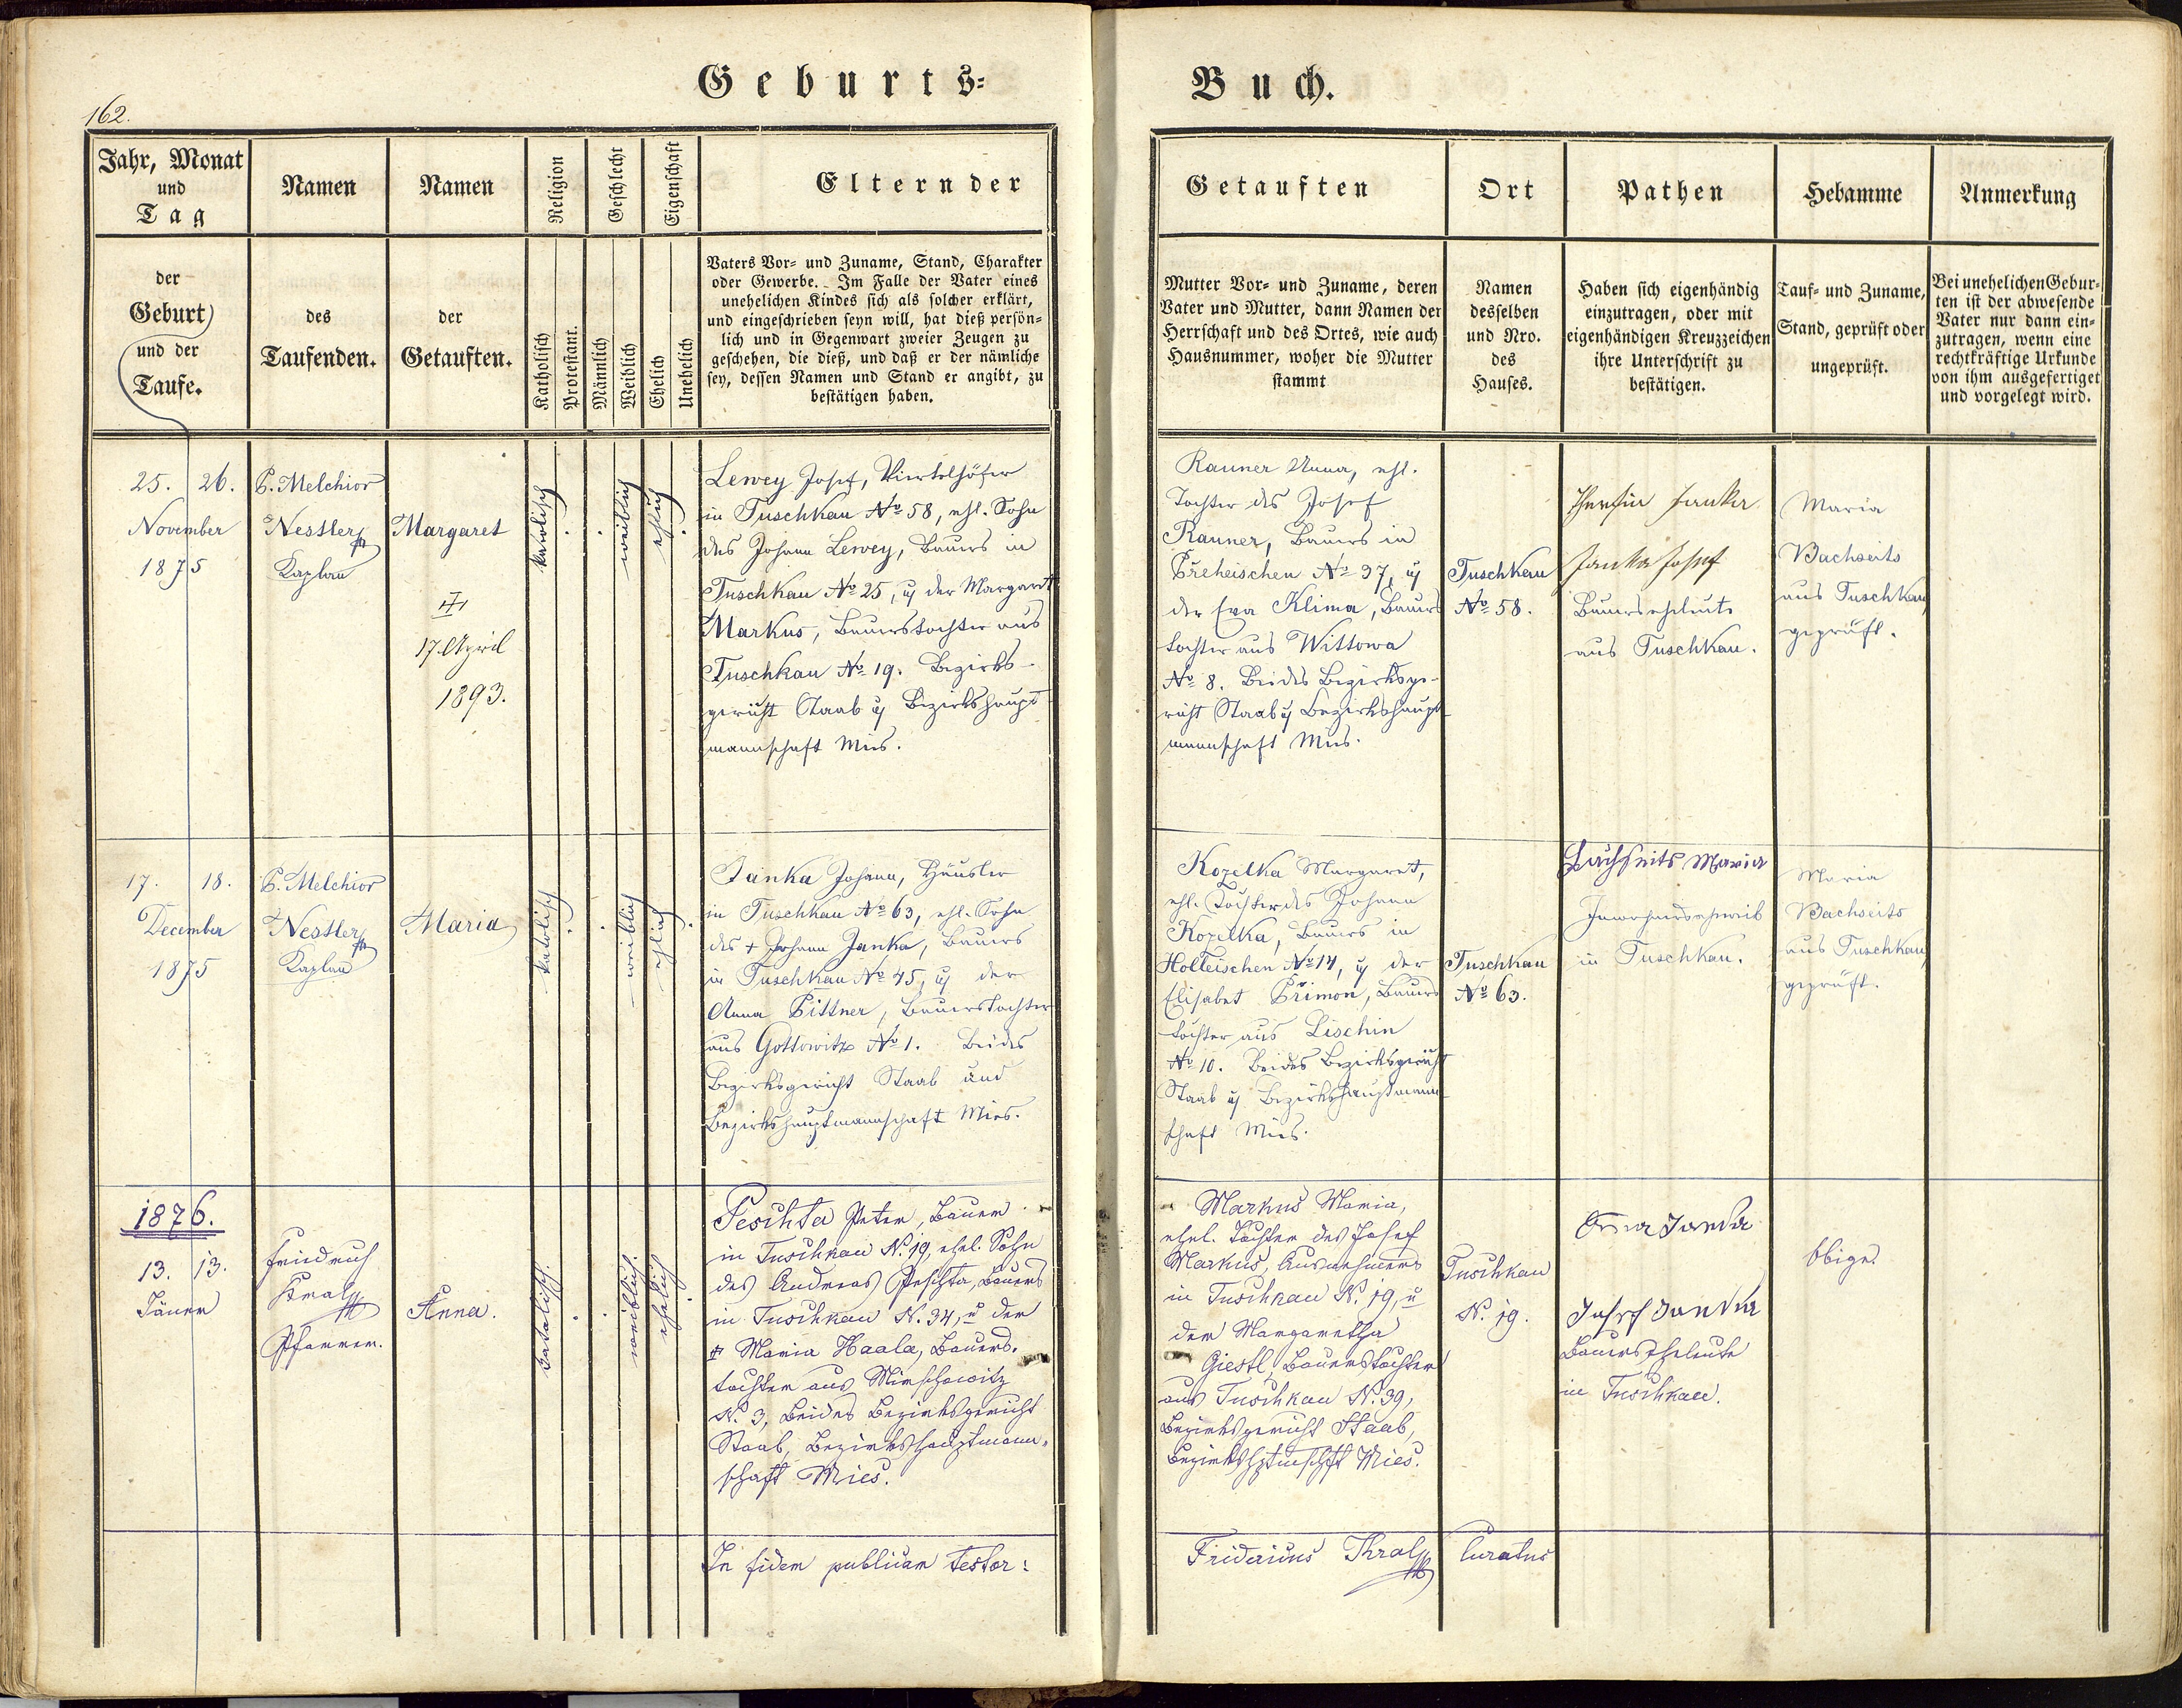 Geburts-
Buch.
162.
Jahr, Monat
und
Tag
Namen
Namen
Religion
Geschlecht
Eigenschaft
Eltern der
der
Geburt
und der
Taufe.
des
Taufenden.
der
Getauften.
Katholisch
Protestant.
Männlich
Weiblich
Ehelich
Unehelich
Vaters Vor- und Zuname, Stand, Charakter
oder Gewerbe. Im Falle der Vater eines
unehelichen Kindes sich als solcher erklärt,
und eingeschrieben seyn will, hat dieß persön-
lich und in Gegenwart zweier Zeugen zu
geschehen, die dieß, und daß er der nämliche
sey, dessen Namen und Stand er angibt, zu
bestätigen haben.
Getauften
Ort
Pathen
Hebamme
Anmerkung
Mutter Vor- und Zuname, deren
Vater und Mutter, dann Namen der
Herrschaft und des Ortes, wie auch
Hausnummer, woher die Mutter
stammt
Namen
desselben
und Nro.
des
Hauses.
Haben sich eigenhändig
einzutragen, oder mit
eigenhändigen Kreuzzeichen
ihre Unterschrift zu
bestätigen.
Tauf- und Zuname,
Stand, geprüft oder
ungeprüft.
Bei unehelichen Gebur-
ten ist der abwesende
Vater nur dann ein-
zutragen, wenn eine
rechtkräftige Urkunde
von ihm ausgefertiget
und vorgelegt wird.
25. 26.
November
1875
P. Melchior
Nestler
Kaplan
Margaret
17. April
1893.
katolisch
weiblich
ehlich
Lewey Josef, Viertelhöfer
in Tuschkau No 58, ehl. Sohn
des Johann Lewey, Bauers in
Tuschkau No 25, u der Margaret
Markus, Bauerstochter aus
Tuschkau No 19. Bezirks-
gericht Staab u Bezirkshaupt-
mannschaft Mies.
Rauner Anna, ehl.
Tochter des Josef
Rauner, Bauers in
Preheischen No 37, u
der Eva Klima, Bauers
tochter aus Wittowa
No 8. Beides Bezirksge-
richt Staab u Bezirkshaupt-
mannschaft Mies.
Tuschkau
No 58.
Janka
Janka Josef
Bauersehleute
aus Tuschkau.
Maria
Bachseits
aus Tuschkau,
geprüft.
17. 18.
December
1875
P. Melchior
Nestler
Kaplan
Maria
katolisch
weiblich
ehlich
Janka Johann, Häusler
in Tuschkau No 63, ehl. Sohn
des + Johann Janka, Bauers
in Tuschkau No 45, u der
Anna Pittner, Bauerstochter
aus Gottowitz No 1. Beides
Bezirksgericht Staab und
Bezirkshauptmannschaft Mies.
Kozelka Margaret,
ehl. Tochter des Johann
Kozelka, Bauers in
Holleischen No 14, u der
Elisabet Přimon, Bauers
tochter aus Lischin
No 10. Beides Bezirksgericht
Staab u Bezirkshauptmann-
schaft Mies.
Tuschkau
No 63.
Bachseits Maria
Inwohnersehweib
in Tuschkau.
Maria
Bachseits
aus Tuschkau,
geprüft.
1876.
13. 13.
Jäner
Friedrich
Kral
Pfarrer.
Anna.
katolisch.
weiblich.
ehelich
Peschta Peter, Bauer
in Tuschkau N. 19, ehel. Sohn
des Andreas Peschta, Bauers
in Tuschkau N. 34, u der
‡ Maria Haala, Bauers-
tochter aus Mirschowitz
N. 3, beides Bezirksgericht
Staab, Bezirkshauptmann-
schaft Mies.
Markus Maria,
ehel. Tochter des Josef
Markus, Ausnehmers
in Tuschkau N. 19, u
der Margaretha
Giestl, Bauerstochter
aus Tuschkau N. 39,
Bezirksgericht Staab,
Bezirkshptmschft Mies.
Tuschkau
N. 19.
Anna Janka
Josef Janka
Bauerseheleute
in Tuschkau.
Obige.
In fidem publicam testor:
Fridericus Kral
Curatus